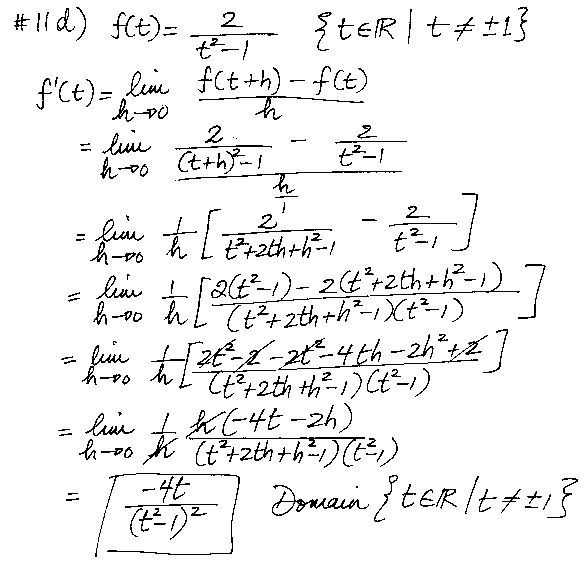 #11d) f(t) = 2/(t²-1) {t∈ℝ | t ≠ ±1}
f'(t) = lim h→0 (f(t+h) - f(t))/h
= lim h→0 (2/((t+h)²-1) - 2/(t²-1))/(h/1)
= lim h→0 1/h [2/(t²+2th+h²-1) - 2/(t²-1)]
= lim h→0 1/h [(2(t²-1) - 2(t²+2th+h²-1))/((t²+2th+h²-1)(t²-1))]
= lim h→0 1/h [(2t²-2-2t²-4th-2h²+2)/((t²+2th+h²-1)(t²-1))]
= lim h→0 1/h h(-4t-2h)/((t²+2th+h²-1)(t²-1))
= -4t/(t²-1)² Domain {t∈ℝ | t ≠ ±1}